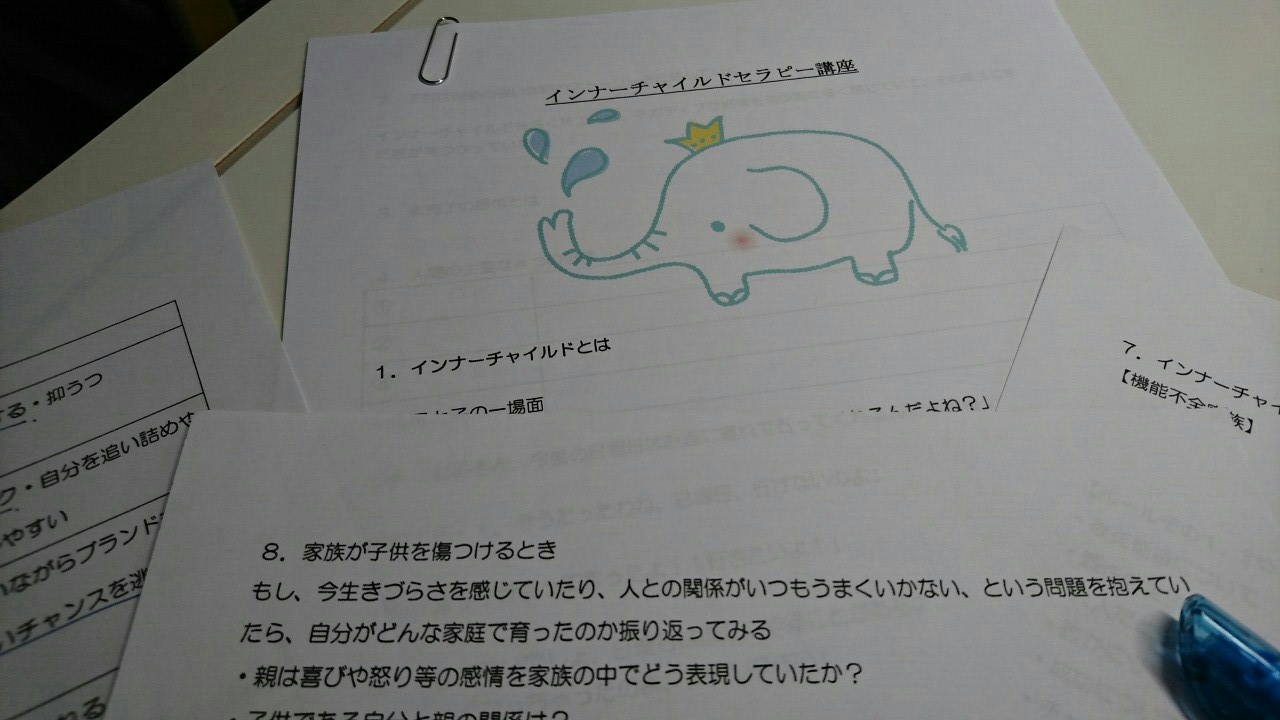 インナーチャイルドセラピー講座
1. インナーチャイルドとは
の一場面
だよね？」
7. インナーチャイ
【機能不全 族】
る・抑うつ
ク・自分を追い詰めや
やすい
ながらブランド
いチャンスを逃
れる
8. 家族が子供を傷つけるとき
もし、今生きづらさを感じていたり、人との関係がいつもうまくいかない、という問題を抱えてい
たら、自分がどんな家庭で育ったのか振り返ってみる
・親は喜びや怒り等の感情を家族の中でどう表現していたか？
・子供である自分と親の関係は？